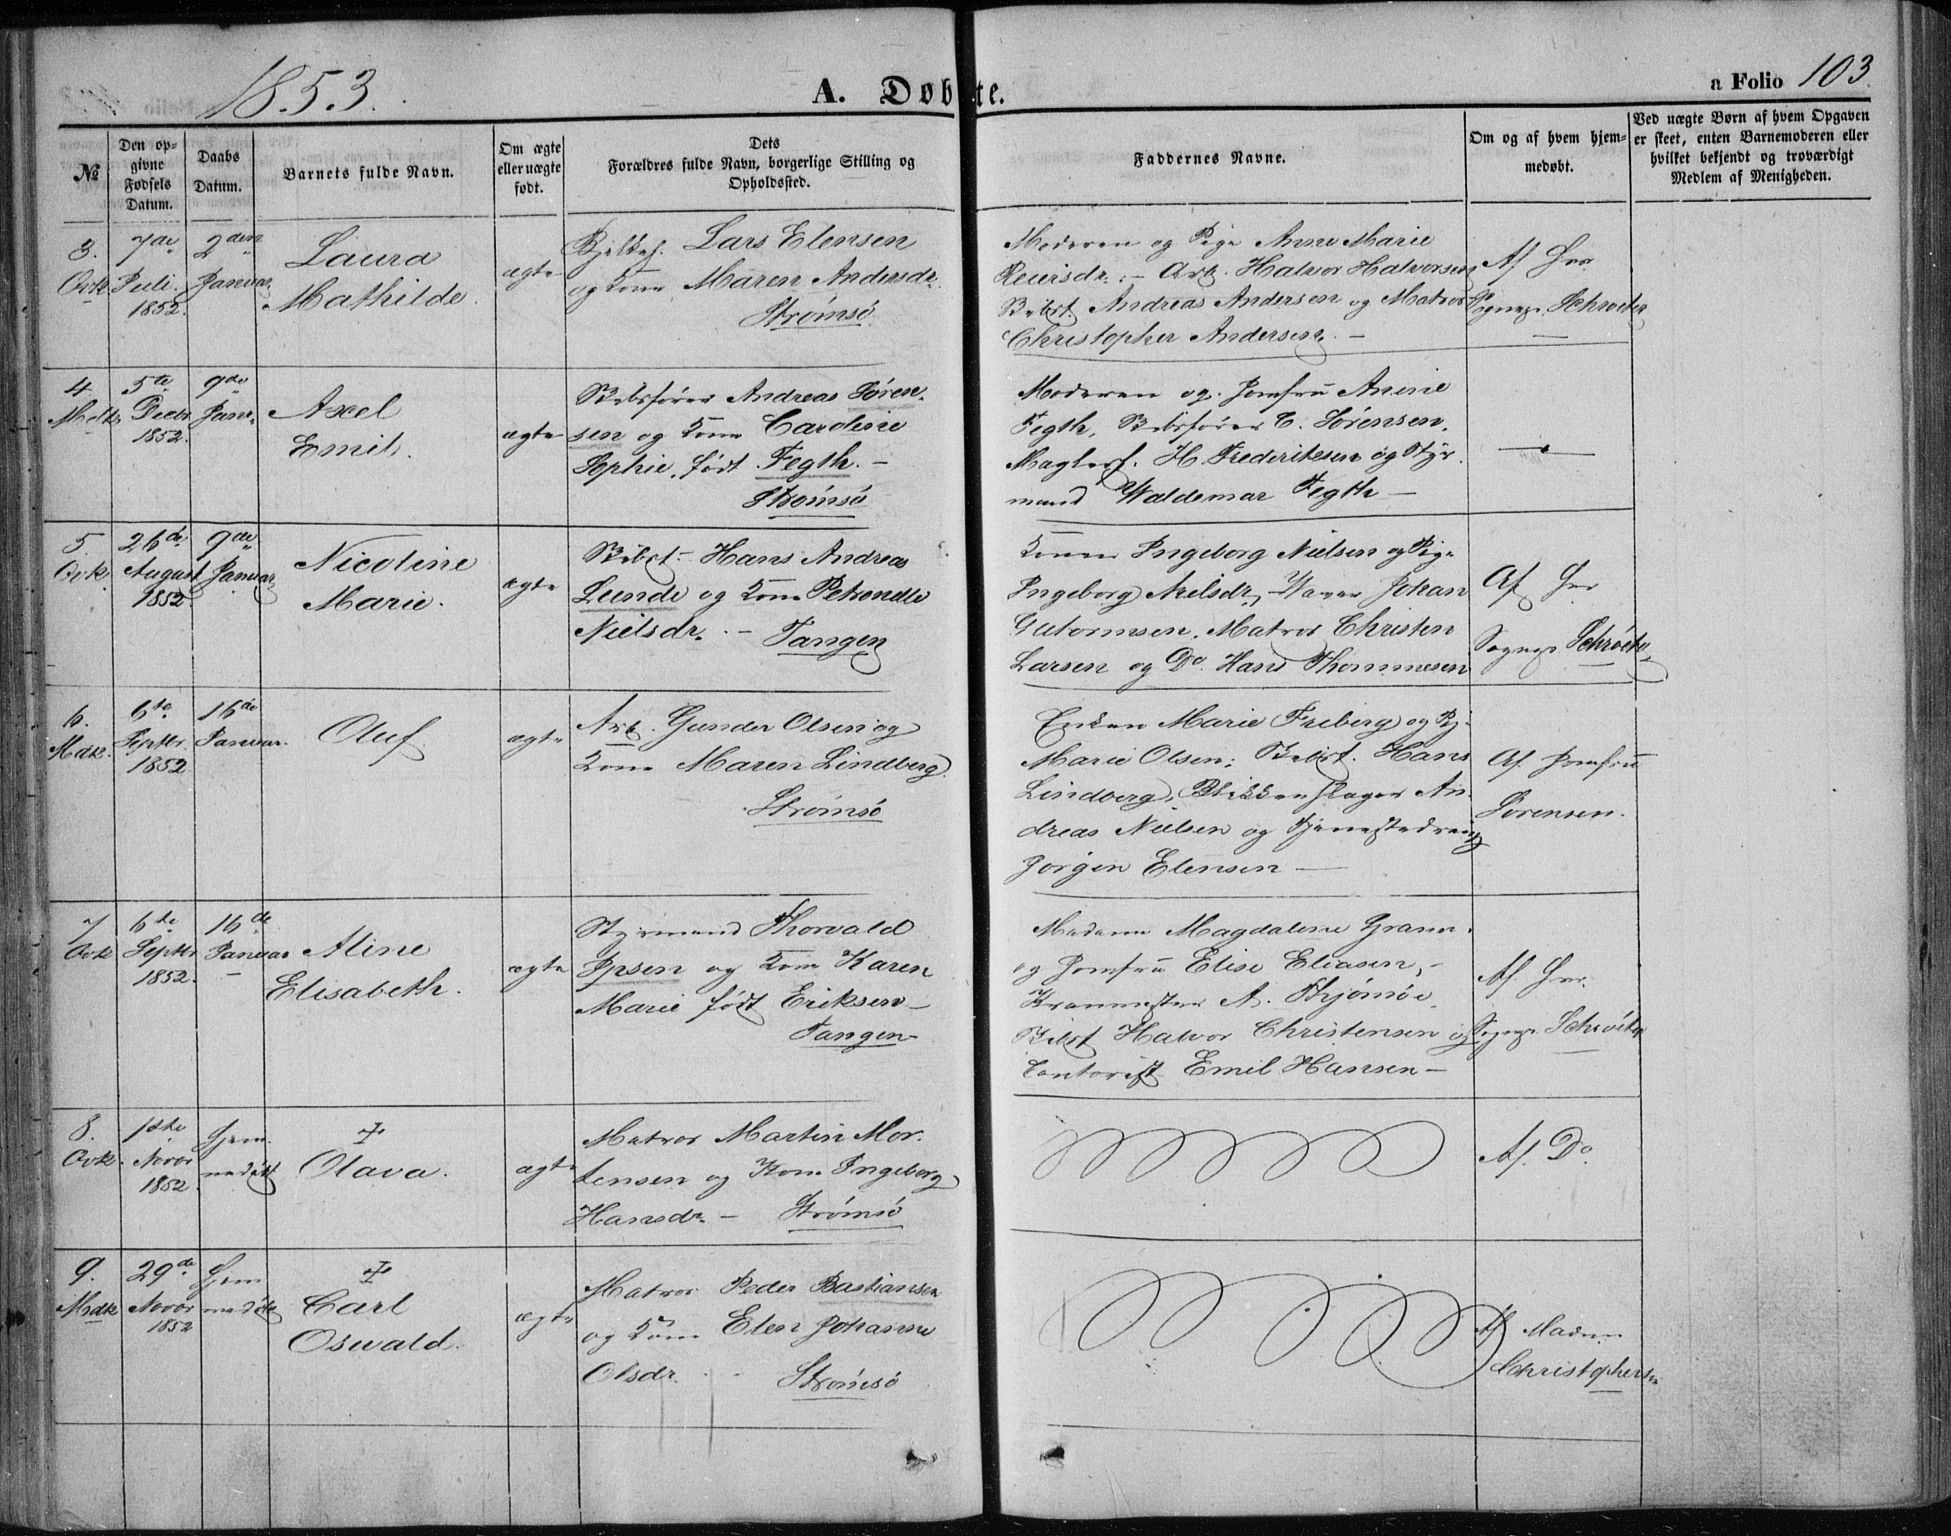 1853.
A. Døbte.
a Folio 103.
№
Den opgivne Fødsels Datum.
Daabs Datum.
Barnets fulde Navn.
Om ægte eller uægte født.
Dets Forældres fulde Navn, borgerlige Stilling og Opholdssted.
Faddernes Navne.
Om og af hvem hjemmedøbt.
Ved uægte Børn af hvem Opgaven er skeet, enten Barnemoderen eller hvilket bekjendt og troværdigt Medlem af Menigheden.
3.
7de Juli 1852.
2den Januar
Laura
Mathilde.
ægte
Lars Elensen
og Kone Maren Andersdr.
Strømsø
Moderen og Pige Anne Marie
Reiersdr. – Arb. Halvor Halvorsen
Andreas Andersen og Matros
Christopher Andersen. –
Af Hr.
Sognepr. Schroeter
4
5te Decbr 1852.
9de Janr.
Axel
Emil.
ægte
Skibsfører Andreas Søren-
sen og Kone Caroline
Sophie, født Fegth. –
Strømsø
Moderen og Jomfru Anine
Fegth, Skibsfører C. Sørensen,
H. Frederiksen og Styr-
mand Waldemar Fegth –
5.
26de August 1852.
9de Januar
Nicoline
Marie.
ægte
Hans Andreas
Lunde og Kone Petronelle
Nielsdr. – Tangen
Konen Ingeborg Nielsen og Pige
Ingeborg Nielsdr, Johan
Gutormsen, Matros Christen
Larsen og Do. Hans Thommesen
Af Hr
Sognepr Schrøeter
6.
6te Septbr. 1852
16de Januar.
Oluf
ægte
Arb. Gunder Olsen og
Kone Maren Lindberg
Strømsø
Enken Marie Friberg og Pj.
Marie Olsen; Hans
Lindberg, Blikkenslager An-
dreas Nielsen og Tjenestedreng
Jørgen Elensen –
Af Jomfru
Sørensen.
7
6te Septbr 1852.
16de Januar
Aline
Elisabeth.
ægte
Styrmand Thorvald
Ipsen og Kone Karen
Marie født Eriksen –
Tangen
Madame Magdalene
og Jomfru Elise Eliasen, –
A. Thjømøe,
Halvor Christensen og
Contorist Emil Hansen –
Af Hr.
Sognepr. Schrøeter
8.
1ste Novbr 1852.
Hjemmedøbt
Olava.
ægte
Matros Martin Mor-
tensen og Kone Ingeborg
Hansdr. – Strømsø
Af Do
9.
29de Novbr 1852
Hjemmedøbt
Carl
Oswald.
ægte
Matros Peder Bastiansen
og Kone Elen Johanne
Olsdr. Strømsø
Af Madme
Christophersen